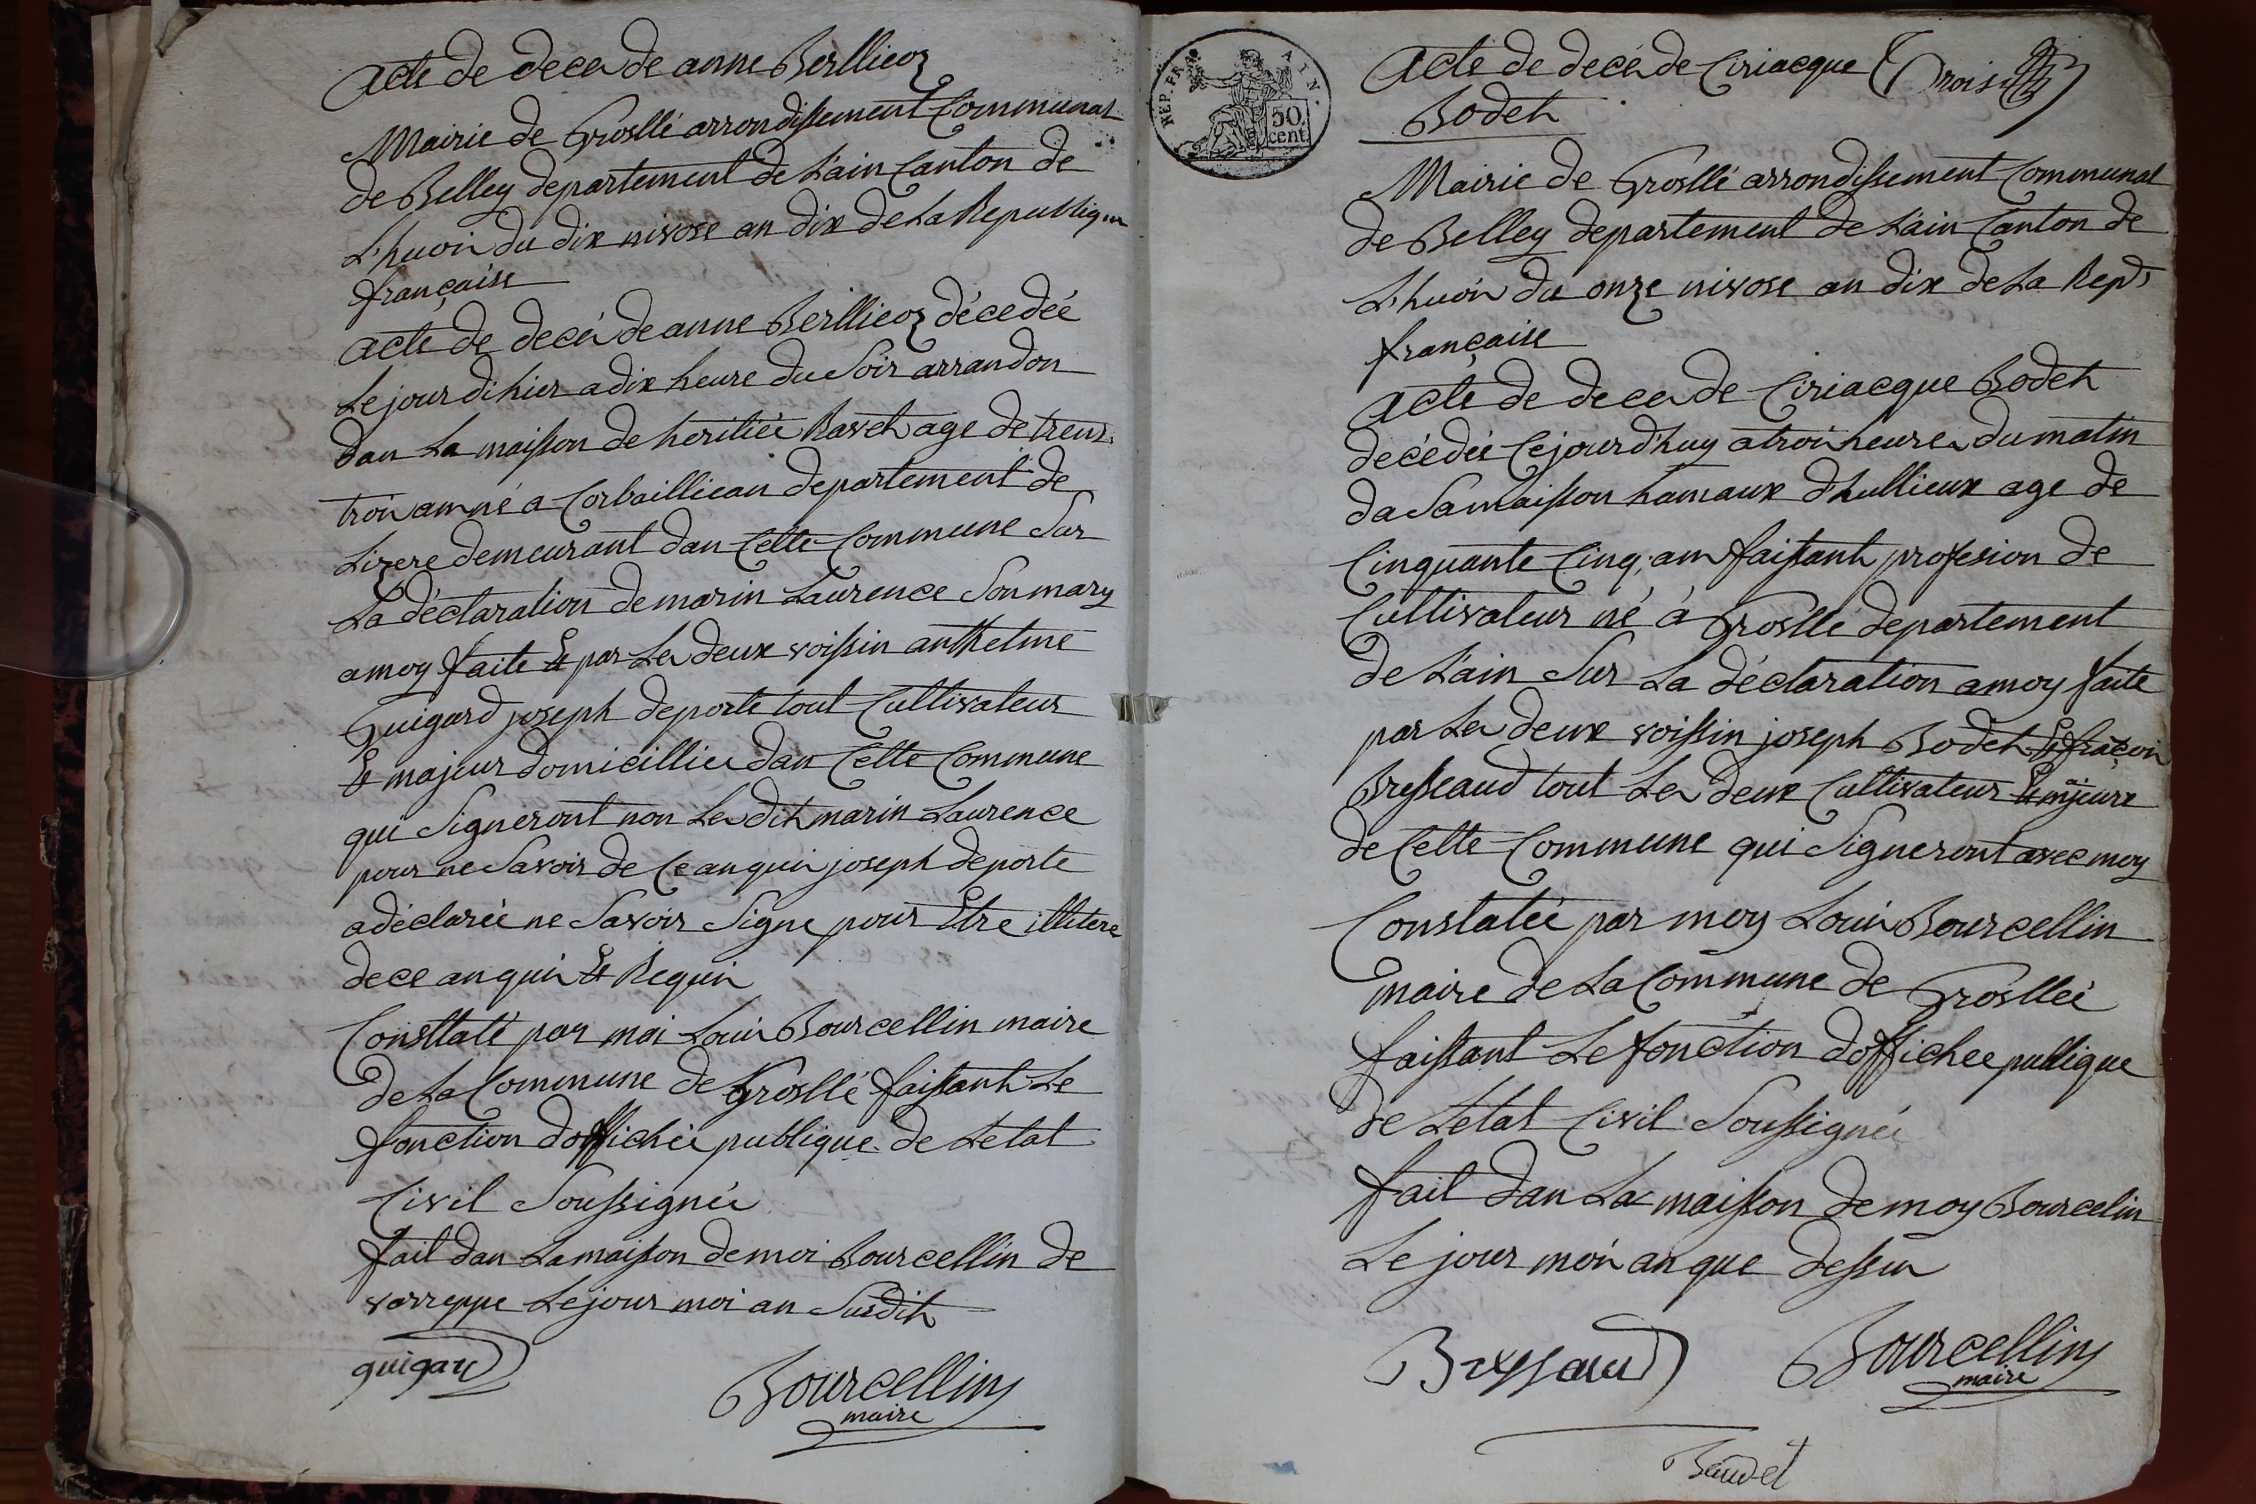 Acte de decés de anne Berllioz
Mairie de Grosllé arrondissement Communal
de Belley departement de L'ain Canton de
L'huois du dix nivose an dix de La Republique
française
acte de decés de anne Berllioz décedée
Le jour di hier a dix heure du Soir arrandon
dan La maisson de heritiée Ravet age de trent
trois ans né a Corbaillieau departement de
Lizere demeurant dan Cette Commune Sur
La déclaration de marin Laurence Son mary
a moy faite Et par Les deux voissin anthelme
Guigard joseph deporte tout Cultivateur
Et majeur domicillies dan Cette Commune
qui Signeront non Les dit marin Laurence
pour ne Savoir de Ce anquis joseph deporte
a déclarée ne Savoir Signe pour Etre illitere
de ce anquis Et Requis
Consttaté par moi Louis Bourcellin maire
de La Commune de Grosllé faissant Le
fonction d'offichée publique de Letat
Civil Soussignée
fait dan La maisson de moi Bourcellin de
varreppe Le jour moi an Susdit
guigard
Bourcellin
maire
REP. FRA. AIN.
50 cent.
Acte de decés de Ciriacque
Bodet
trois
Mairie de Grosllé arrondissement Communal
de Belley departement de L'ain Canton de
L'huois du onze nivose an dix de La Rep
française
Acte de deces de Ciriacque Bodet
decédée Ce jourd'huy a trois heures du matin
da Sa maisson hamaux d'hullieux age de
Cinquante Cinq ans faissant profesion de
Cultivateur né à Grosllé departement
de L'ain Sur La déclaration a moy faite
par Les deux voissin joseph Bodet Et fraçois
Bressaud tout Les deux Cultivateur Et majeurx
de Cette Commune qui Signeront avec moy
Constatée par moy Louis Bourcellin
maire de La Commune de Grosllée
faissant Le fonction d'offichee publique
de Letat Civil Soussignée
fait dan La maisson de moy Bourcelin
Le jour mois an que dessus
Bressaud
Bourcellin
maire
Baudet